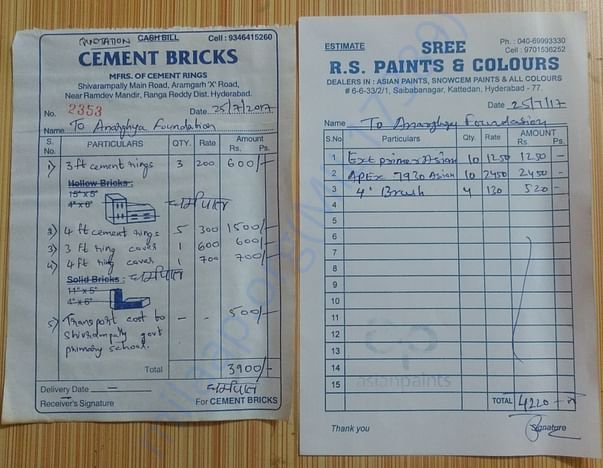 QUOTATION CASH BILL Cell : 9346415260
CEMENT BRICKS
MFRS. OF CEMENT RINGS
Shivarampally Main Road, Aramgarh 'X' Road,
Near Ramdev Mandir, Ranga Reddy Dist. Hyderabad.
No. 2353 Date 25/7/2017
Name To Anarghya Foundation
S. No. PARTICULARS QTY. Rate Amount Rs. Ps.
1) 3 ft cement rings 3 200 600/-
Hollow Bricks :
15" x 5"
4" x 6"
2) 4 ft cement rings 5 300 1500/-
3) 3 ft ring cover 1 600 600/-
4) 4 ft ring cover 1 700 700/-
Solid Bricks :
14" x 5"
4" x 6"
5) Transport cost to - - 500/-
Shivrampally govt
primary school.
Total 3900/-
Delivery Date -
Receiver's Signature For CEMENT BRICKS
ESTIMATE Ph. : 040-69993330
Cell : 9701536252
SREE
R.S. PAINTS & COLOURS
DEALERS IN : ASIAN PAINTS, SNOWCEM PAINTS & ALL COLOURS
# 6-6-33/2/1, Saibabanagar, Kattedan, Hyderabad - 77.
Date 25/7/17
Name To Anarghya Foundation
S.No Particulars Qty. Rate AMOUNT Rs. Ps.
1 Ext primer Asian 10 1250 1250 -
2 APEX 7930 Asian 10 2450 2450 -
3 4" Brush 4 130 520 -
4
5
6
7
8
9
10
11
12
13
14
15
asianpaints
TOTAL 4220 -
Thank you Signature
milaap.org